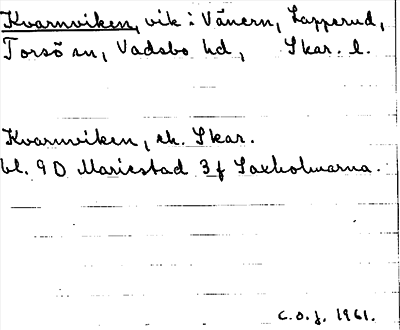 Kvarnviken, vik i Vänern, Lapperud,
Torsö sn, Vadsbo hd, Skar. l.
Kvarnviken, ek. Skar.
bl. 9 D Mariestad 3 f Laxholmarna.
C.O.J. 1961.